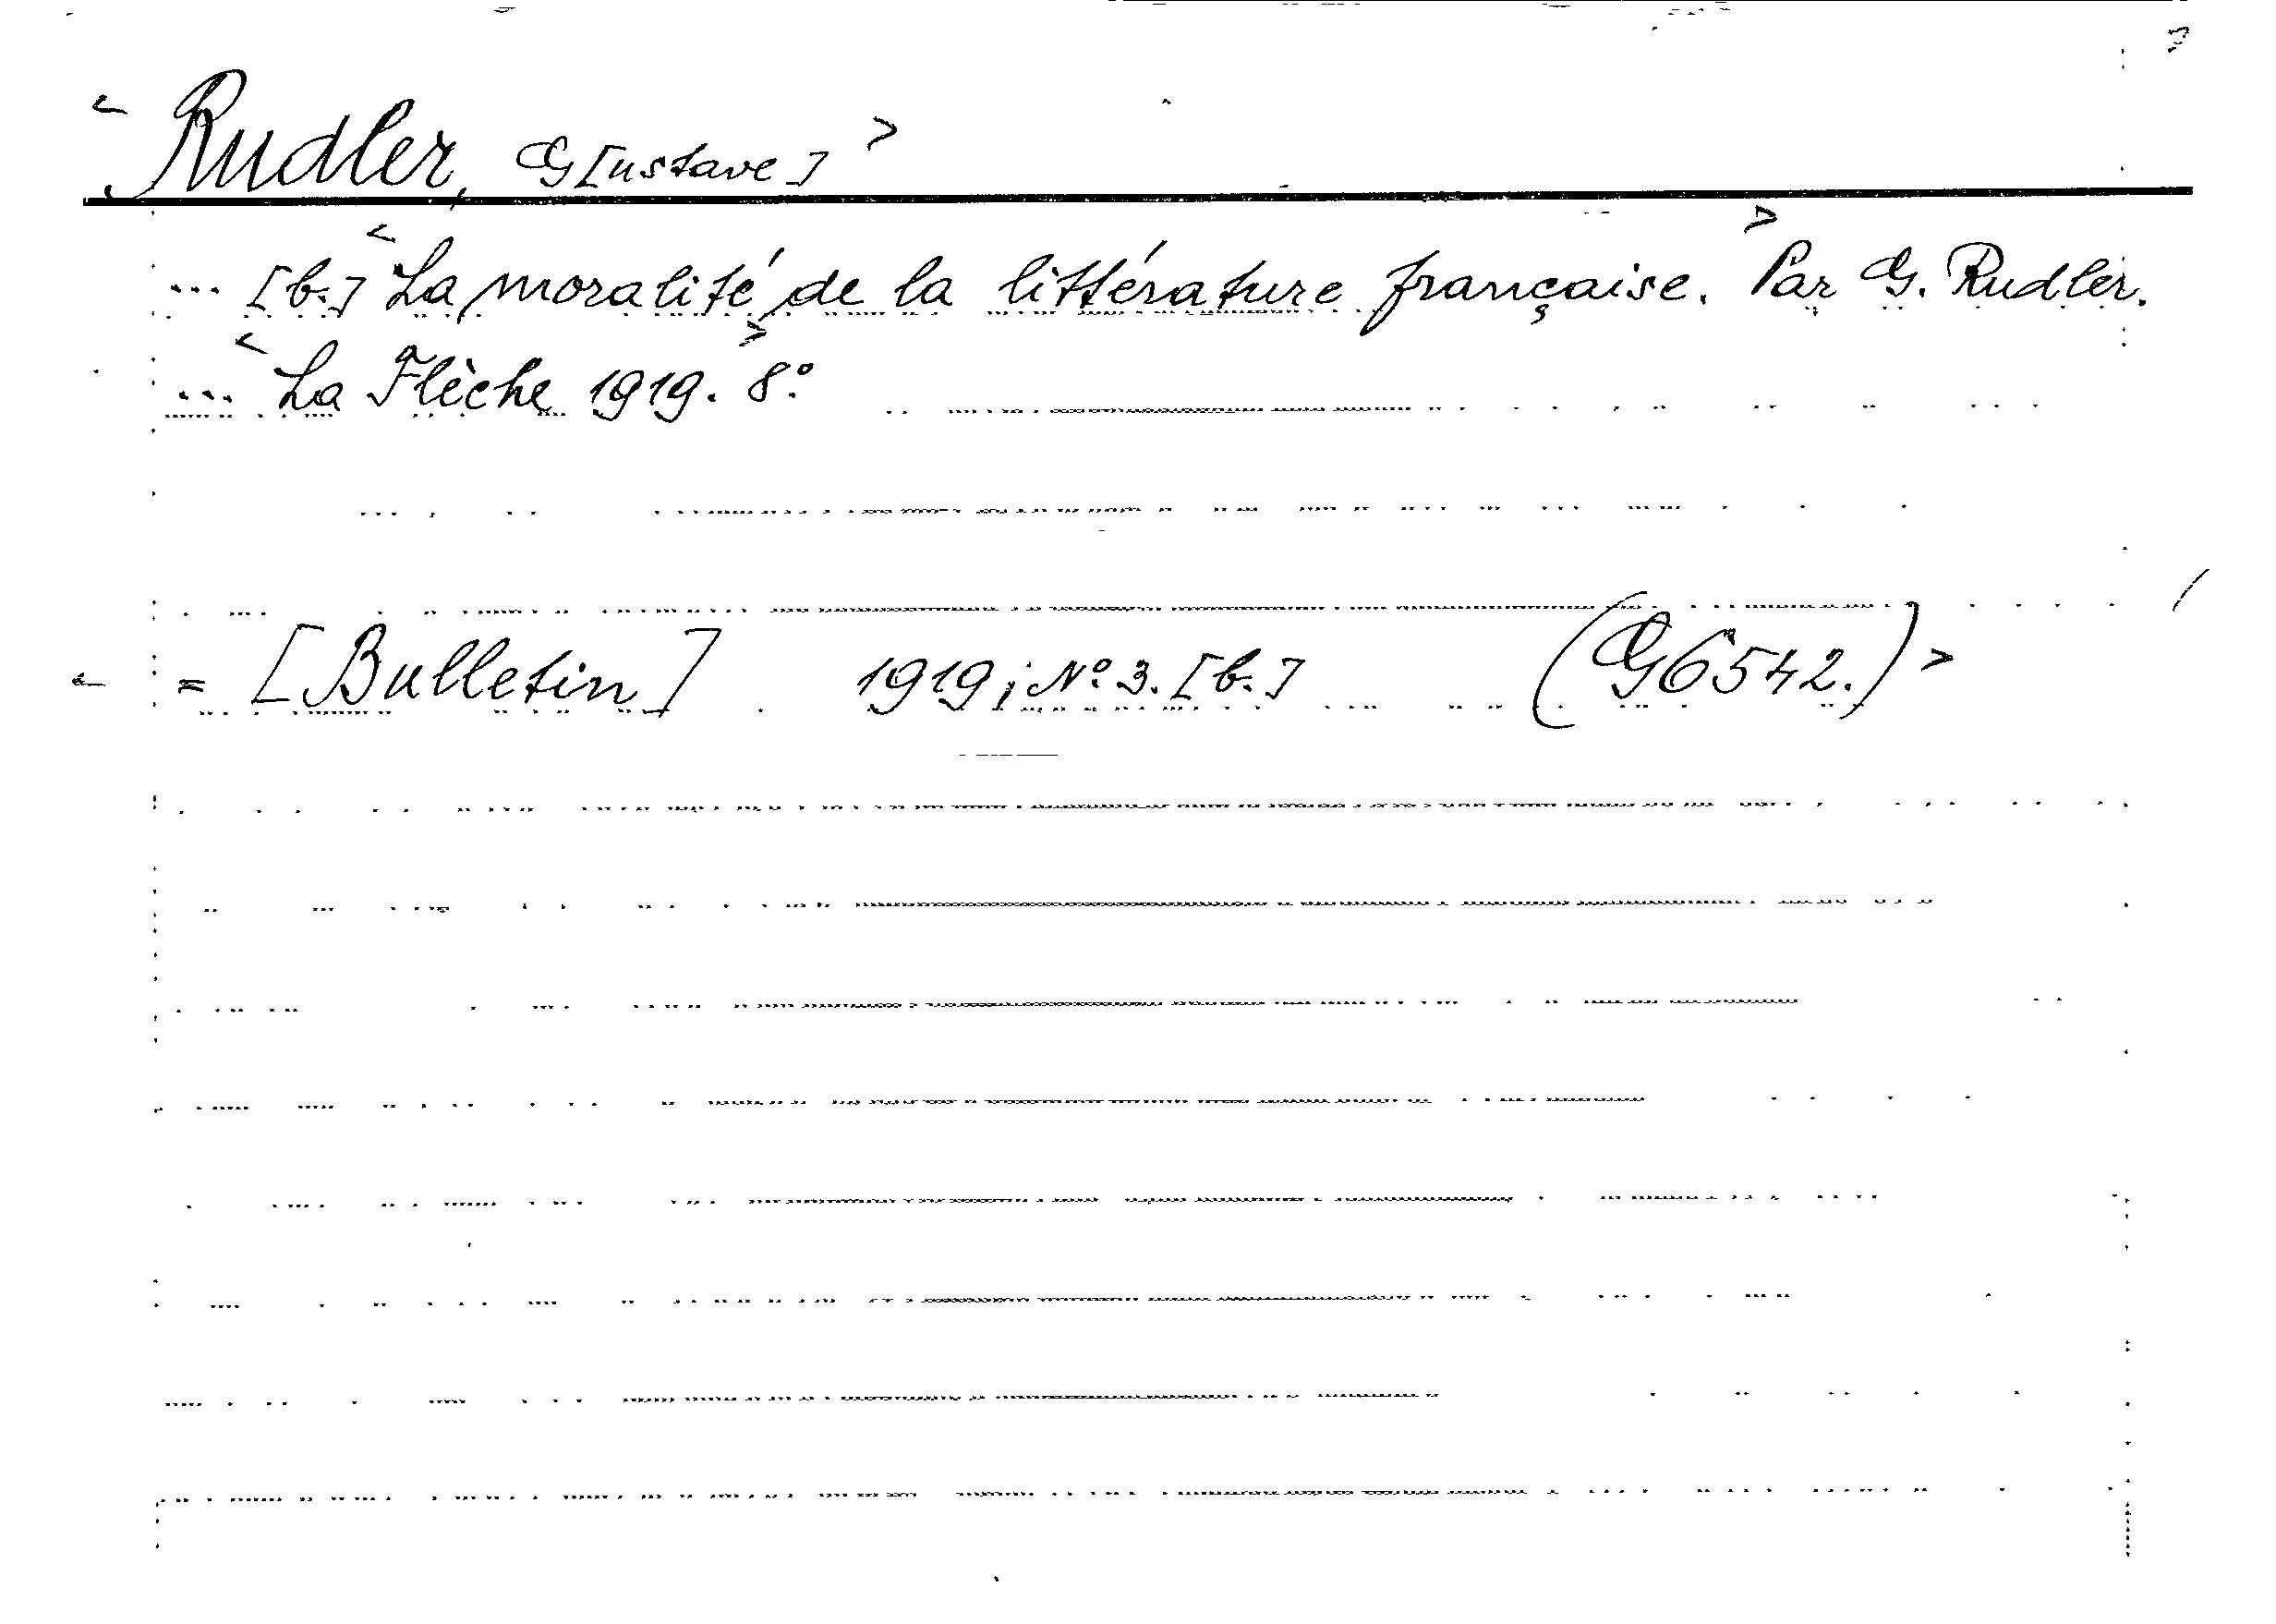 < Rudler, G[ustave] >
... [b.] < La moralité de la littérature française. > Par G. Rudler.
... < La Flèche > 1919. 8°.
< = [Bulletin] 1919; N° 3. [b.] (G 6542.) >